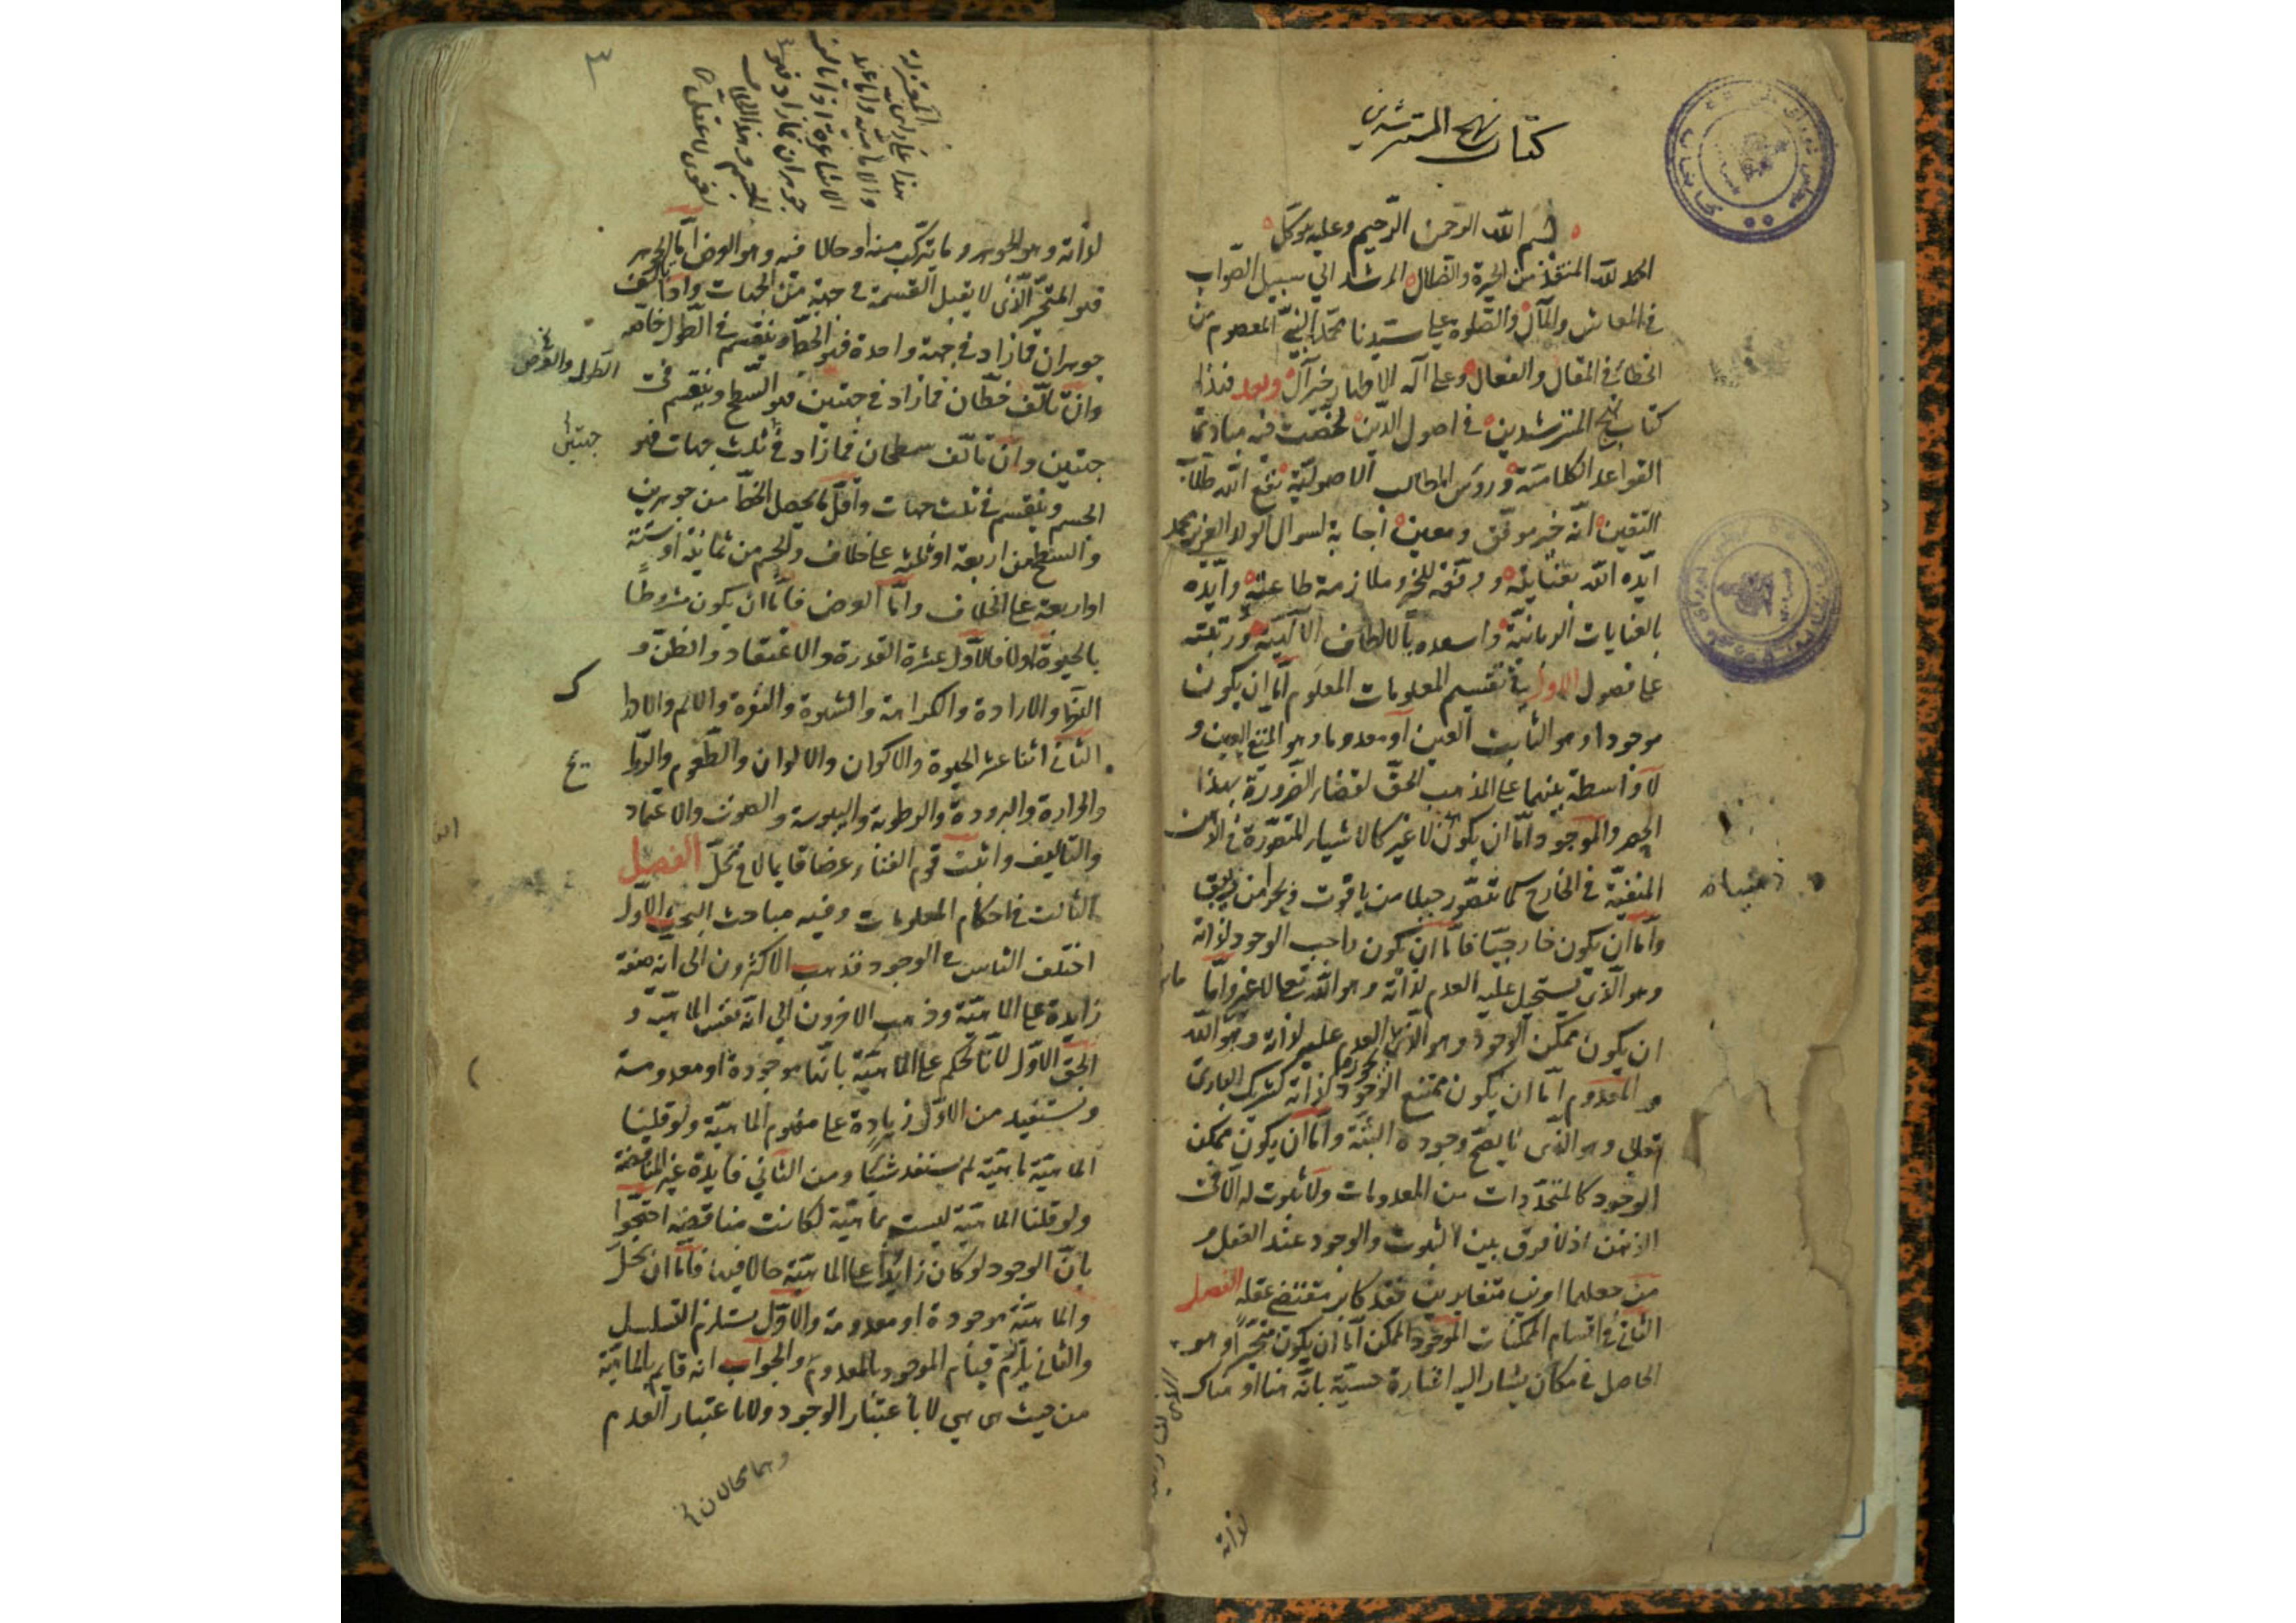 كتاب نهج المسترشدين
بسم الله الرحمن الرحيم وعليه توكل
الحمد لله المنقذ من الحيرة والضلال المرشد الى سبيل الصواب
في المعاش والمآل والصلوة على سيدنا محمد النبي المعصوم من
الخطأ في المقال والفعال وعلى آله الاطهار خير آل وبعد فهذا
كتاب نهج المسترشدين في اصول الدين لخصت فيه مبادئ
القواعد الكلامية ورؤس المطالب الاصولية نفع الله طلاب
اليقين انه خير موفق ومعين اجابة لسوال الولد العزيز محمد
ايده الله بعنايته ووفقه للخير وملازمة طاعته وايده
بالعنايات الربانية واسعده بالالطاف الالهية ورتبته
على فصول الاول في تقسيم المعلومات المعلوم اما ان يكون
موجودا وهو الثابت العين او معدوما وهو المنتفي العين و
لا واسطة بينهما على المذهب الحق لقضاء الضرورة بهذا
الحصر والموجود اما ان يكون ذهنيا لا غير كالاشياء المتصورة في الاذهان
المنفية في الخارج كما نتصور جبلا من ياقوت وبحرا من زيبق
واما ان يكون خارجيا فاما ان يكون واجب الوجود لذاته
وهو الذي يستحيل عليه العدم لذاته وهو الله تعالى لا غير واما
ان يكون ممكن الوجود وهو الذي يجوز العدم عليه لذاته وهو ما عدا الله
والمعدوم اما ان يكون ممتنع الوجود لذاته كشريك الباري
تعالى وهو الذي لا يصح وجوده البتة واما ان يكون ممكن
الوجود كالمتجددات من المعدومات ولا ثبوت له الا في
الذهن اذ لا فرق بين الثبوت والوجود عند العقل و
من جعلهما امرين متغايرين فقد كابر مقتضى عقله الفصل
الثاني في اقسام الممكنات الموجود الممكن اما ان يكون متحيزا وهو
الحاصل في مكان يشار اليه اشارة حسية بانه هنا او هناك
لذاته
٣
لذاته وهو الجوهر وما يتركب منه او حالا فيه وهو العرض اما الجوهر
فهو المتحيز الذي لا يقبل القسمة في جهة من الجهات واذا تألف
جوهران فما زاد في جهة واحدة فهو الخط وينقسم في الطول خاصة
وان تألف خطان فما زاد في جهتين فهو السطح وينقسم في
الطول والعرض
جهتين وان تألف سطحان فما زاد في ثلث جهات فهو
جهتين
الجسم وينقسم في ثلث جهات واقل ما يحصل الخط من جوهرين
والسطح من اربعة او ثلثة على خلاف والجسم من ثمانية او ستة
او اربعة على الخلاف واما العرض فاما ان يكون مشروطا
بالحيوة او لا فالاول عشرة القدرة والاعتقاد والظن و
النظر والارادة والكراهة والشهوة والنفرة والالم والادرا
ك
الثاني اثنا عشر الحيوة والاكوان والالوان والطعوم والروا
يح
والحرارة والبرودة والرطوبة واليبوسة والصوت والاعتماد
والتاليف واثبت قوم الفناء عرضا قايما لا في محل الفصل
الثالث في احكام المعلومات وفيه مباحث البحث الاول
اختلف الناس في الوجود فذهب الاكثرون الى انه صفة
زايدة على الماهية وذهب الاخرون الى انه نفس الماهية و
الحق الاول لانا نحكم على الماهية بانها موجودة او معدومة
ونستفيد من الاول زيادة على مفهوم الماهية ولو قلنا
الماهية ماهية لم نستفد شيئا ومن الثاني فايدة غير المناقضة
ولو قلنا الماهية ليست بماهية لكانت مناقضة احتجوا
بان الوجود لو كان زايدا على الماهية حالا فيها فاما ان يحل
والماهية موجودة او معدومة والاول يستلزم التسلسل
والثاني يلزم قيام الموجود بالمعدوم والجواب انه قايم بالماهية
من حيث هي هي لا باعتبار الوجود ولا باعتبار العدم
وهما محالان